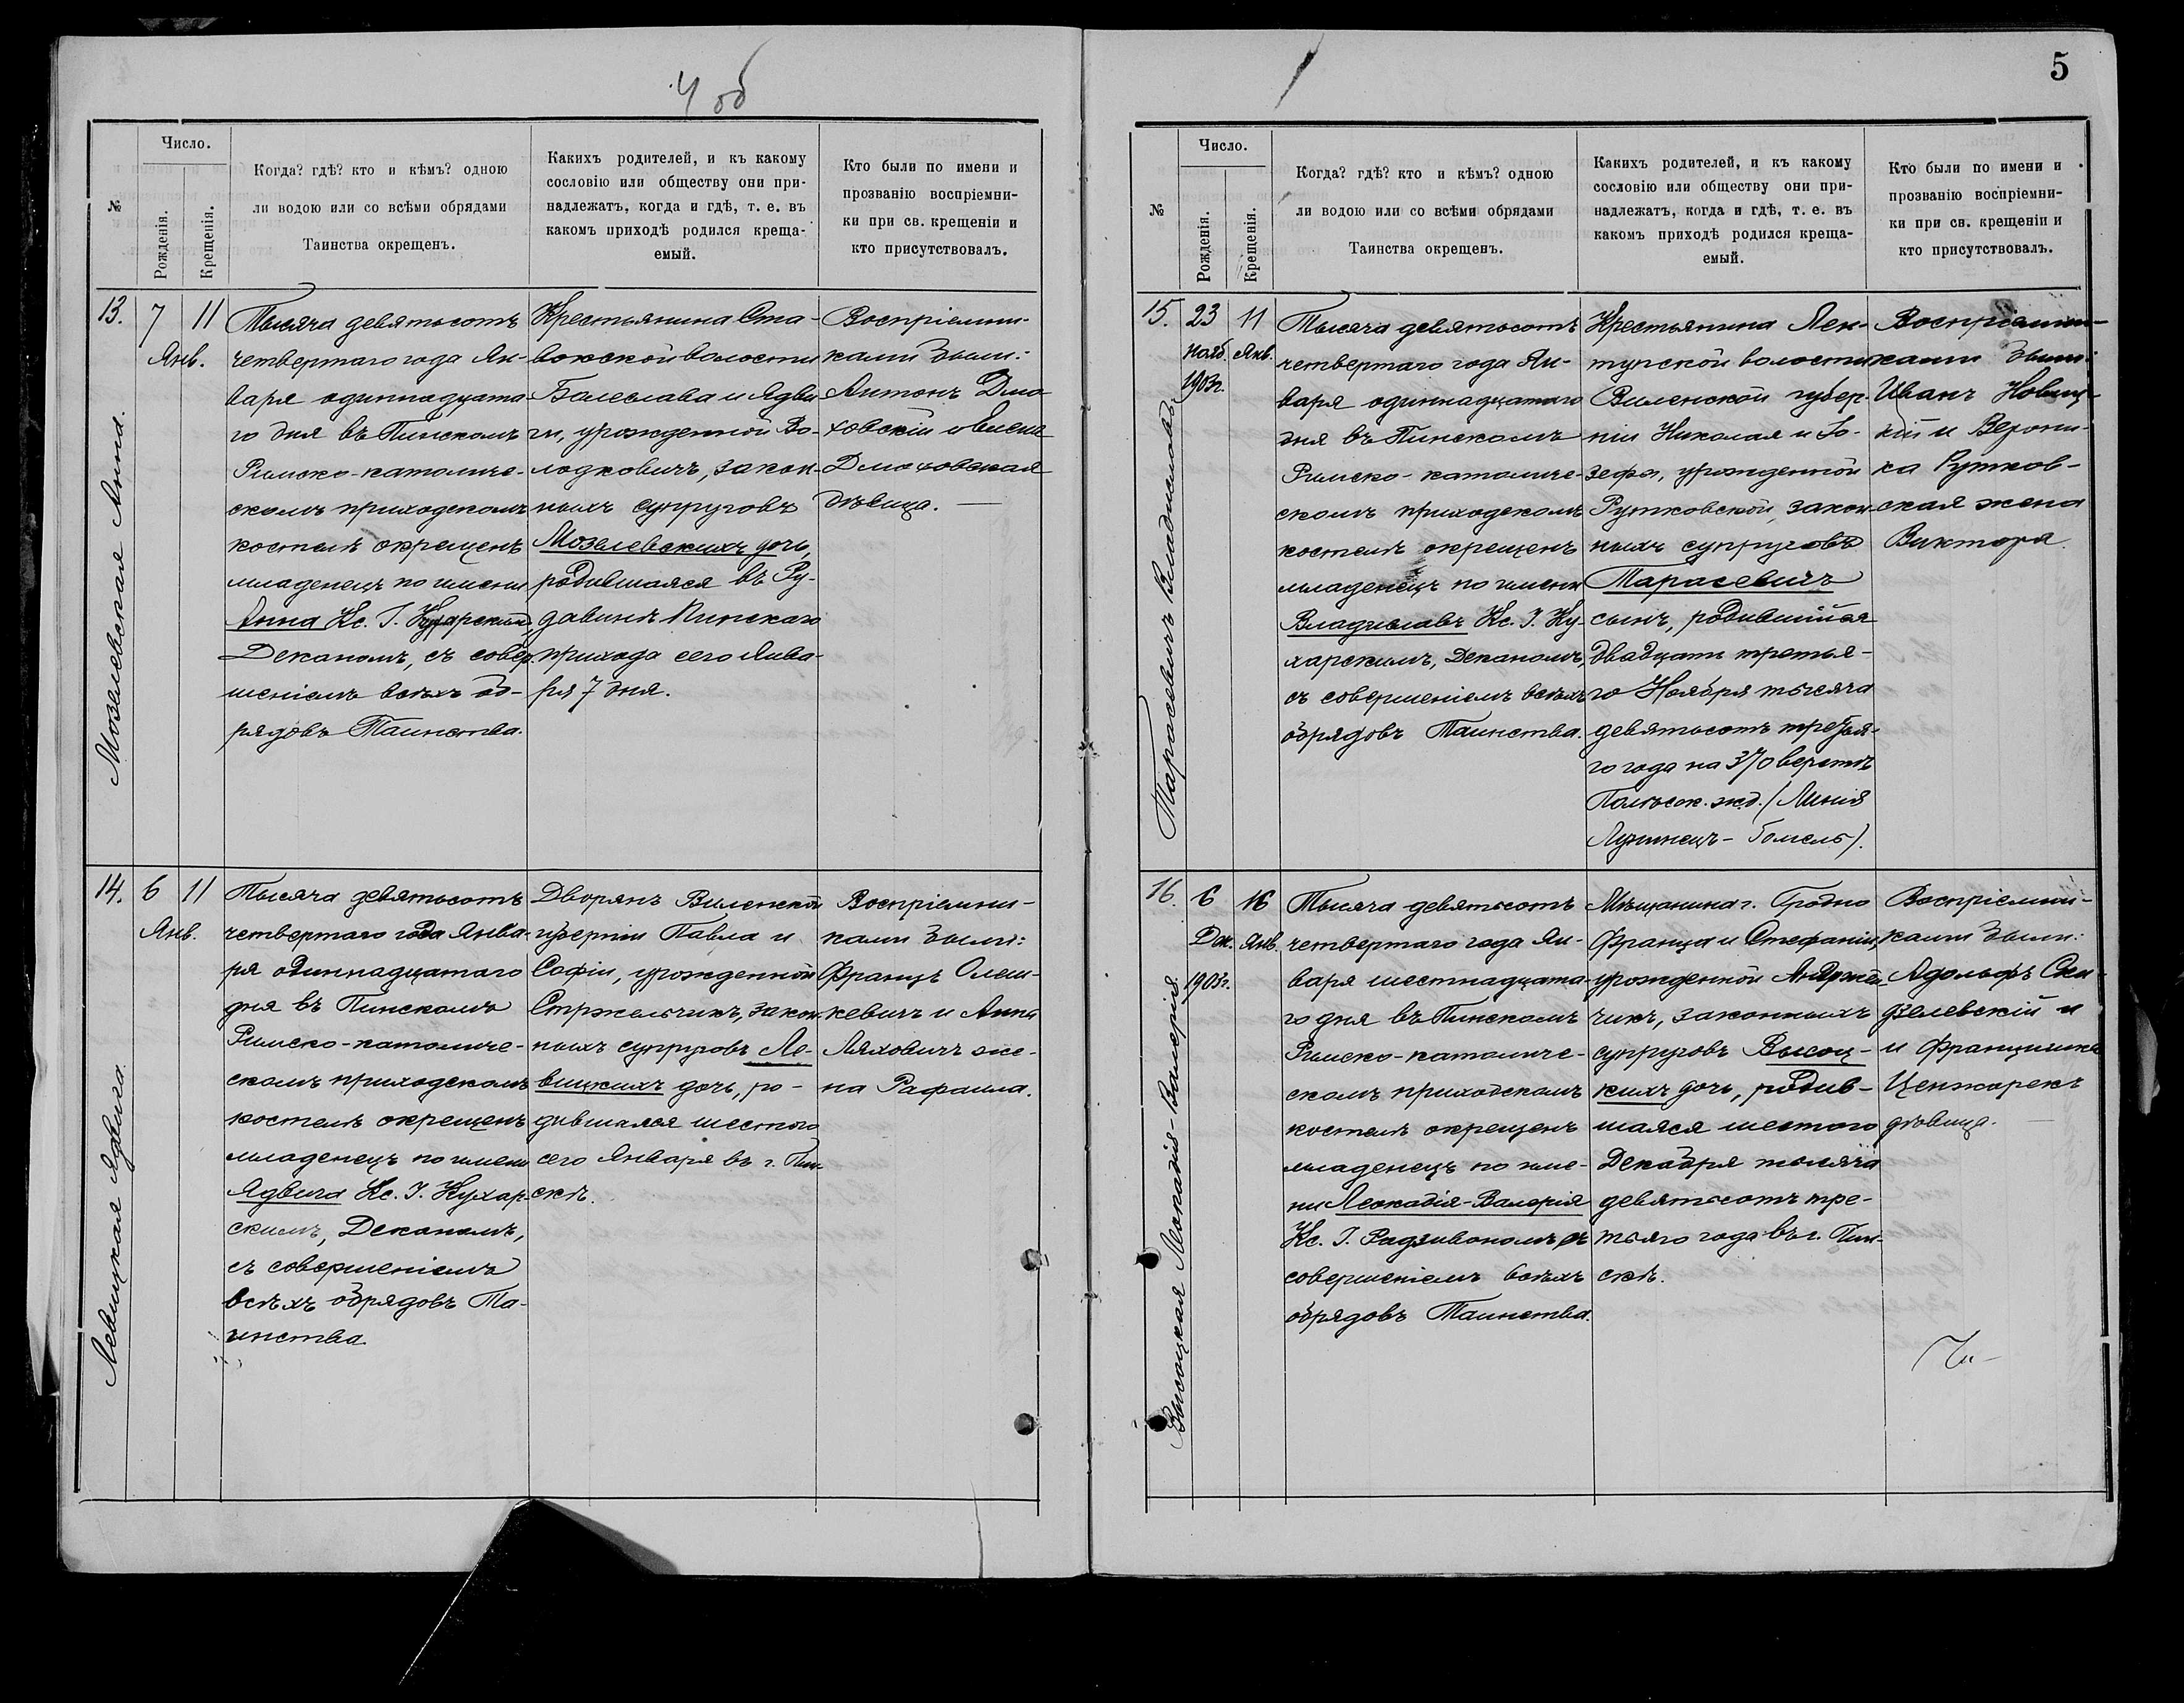 4 об
5
№
Число.
Рожденія.
Крещенія.
Когда? гдѣ? кто и кѣмъ? одною
ли водою или со всѣми обрядами
Таинства окрещенъ.
Какихъ родителей, и къ какому
сословію или обществу они при-
надлежатъ, когда и гдѣ, т. е. въ
какомъ приходѣ родился креща-
емый.
Кто были по имени и
прозванію воспріемни-
ки при св. крещеніи и
кто присутствовалъ.
13.
Мозелевская Анна.
7
Янв.
11
Тысяча девятьсотъ
четвертаго года Ян-
варя одиннадцата-
го дня въ Пинскомъ
Римско-католиче-
скомъ приходскомъ
костелѣ окрещенъ
младенецъ по имени
Анна Кс. І. Кухарскимъ,
Деканомъ, съ совер-
шеніемъ всѣхъ об-
рядовъ Таинства.
Крестьянина Ста-
вокской волости
Болеслава и Ядви-
ги, урожденной Во-
лодковичъ, закон-
ныхъ супруговъ
Мозелевскихъ дочь,
родившаяся въ Ру-
давинѣ Пинскаго
прихода сего Янва-
ря 7 дня.
Воспріемни-
ками были:
Антонъ Дмо-
ховскій и
Дмоховская
дѣвица.
14.
Левицкая Ядвига.
6
Янв.
11
Тысяча девятьсотъ
четвертаго года Янва-
ря одиннадцатаго
дня въ Пинскомъ
Римско-католиче-
скомъ приходскомъ
костелѣ окрещенъ
младенецъ по имени
Ядвига Кс. І. Кухар-
скимъ, Деканомъ,
съ совершеніемъ
всѣхъ обрядовъ Та-
инства.
Дворянъ Виленской
губерніи Павла и
Софіи, урожденной
Стржельчикъ, закон-
ныхъ супруговъ Ле-
вицкихъ дочь, ро-
дившаяся шестого
сего Января въ г. Пин-
скѣ.
Воспріемни-
ками были:
Францъ Олеш-
кевичъ и Анна
Ляховичъ же-
на Рафаила.
№
Число.
Рожденія.
Крещенія.
Когда? гдѣ? кто и кѣмъ? одною
ли водою или со всѣми обрядами
Таинства окрещенъ.
Какихъ родителей, и къ какому
сословію или обществу они при-
надлежатъ, когда и гдѣ, т. е. въ
какомъ приходѣ родился креща-
емый.
Кто были по имени и
прозванію воспріемни-
ки при св. крещеніи и
кто присутствовалъ.
15.
Тарасевичъ Владиславъ.
23
Нояб.
1903г.
11
Янв.
Тысяча девятьсотъ
четвертаго года Ян-
варя одиннадцатаго
дня въ Пинскомъ
Римско-католиче-
скомъ приходскомъ
костелѣ окрещенъ
младенецъ по имени
Владиславъ Кс. І. Ку-
харскимъ, Деканомъ,
съ совершеніемъ всѣхъ
обрядовъ Таинства.
Крестьянина Лен-
тупской волости
Виленской губер-
ніи Николая и Іо-
зефы, урожденной
Рутковской, закон-
ныхъ супруговъ
Тарасевичъ
сынъ, родившійся
двадцать третья-
го Ноября тысяча
девятьсотъ третья-
го года на 370 верстѣ
Полѣсск. ж.д. (Линія
Лунинецъ-Гомель).
Воспріемни-
ками были:
Иванъ Новиц-
кій и Верони-
ка Рутков-
ская жена
Виктора.
16.
Высоцкая Леокадія-Валерія.
6
Дек.
1903г.
16
Янв.
Тысяча девятьсотъ
четвертаго года Ян-
варя шестнадцата-
го дня въ Пинскомъ
Римско-католиче-
скомъ приходскомъ
костелѣ окрещенъ
младенецъ по име-
ни Леокадія-Валерія
Кс. І. Радзивономъ съ
совершеніемъ всѣхъ
обрядовъ Таинства.
Мѣщанина г. Гродно
Франца и Стефаніи,
урожденной Андржей-
чикъ, законныхъ
супруговъ Высоц-
кихъ дочь, родив-
шаяся шестого
Декабря тысяча
девятьсотъ тре-
тьяго года въ г. Пин-
скѣ.
Воспріемни-
ками были:
Адольфъ Ски-
дзелевскій и
и Францишка
Центарекъ
дѣвица.